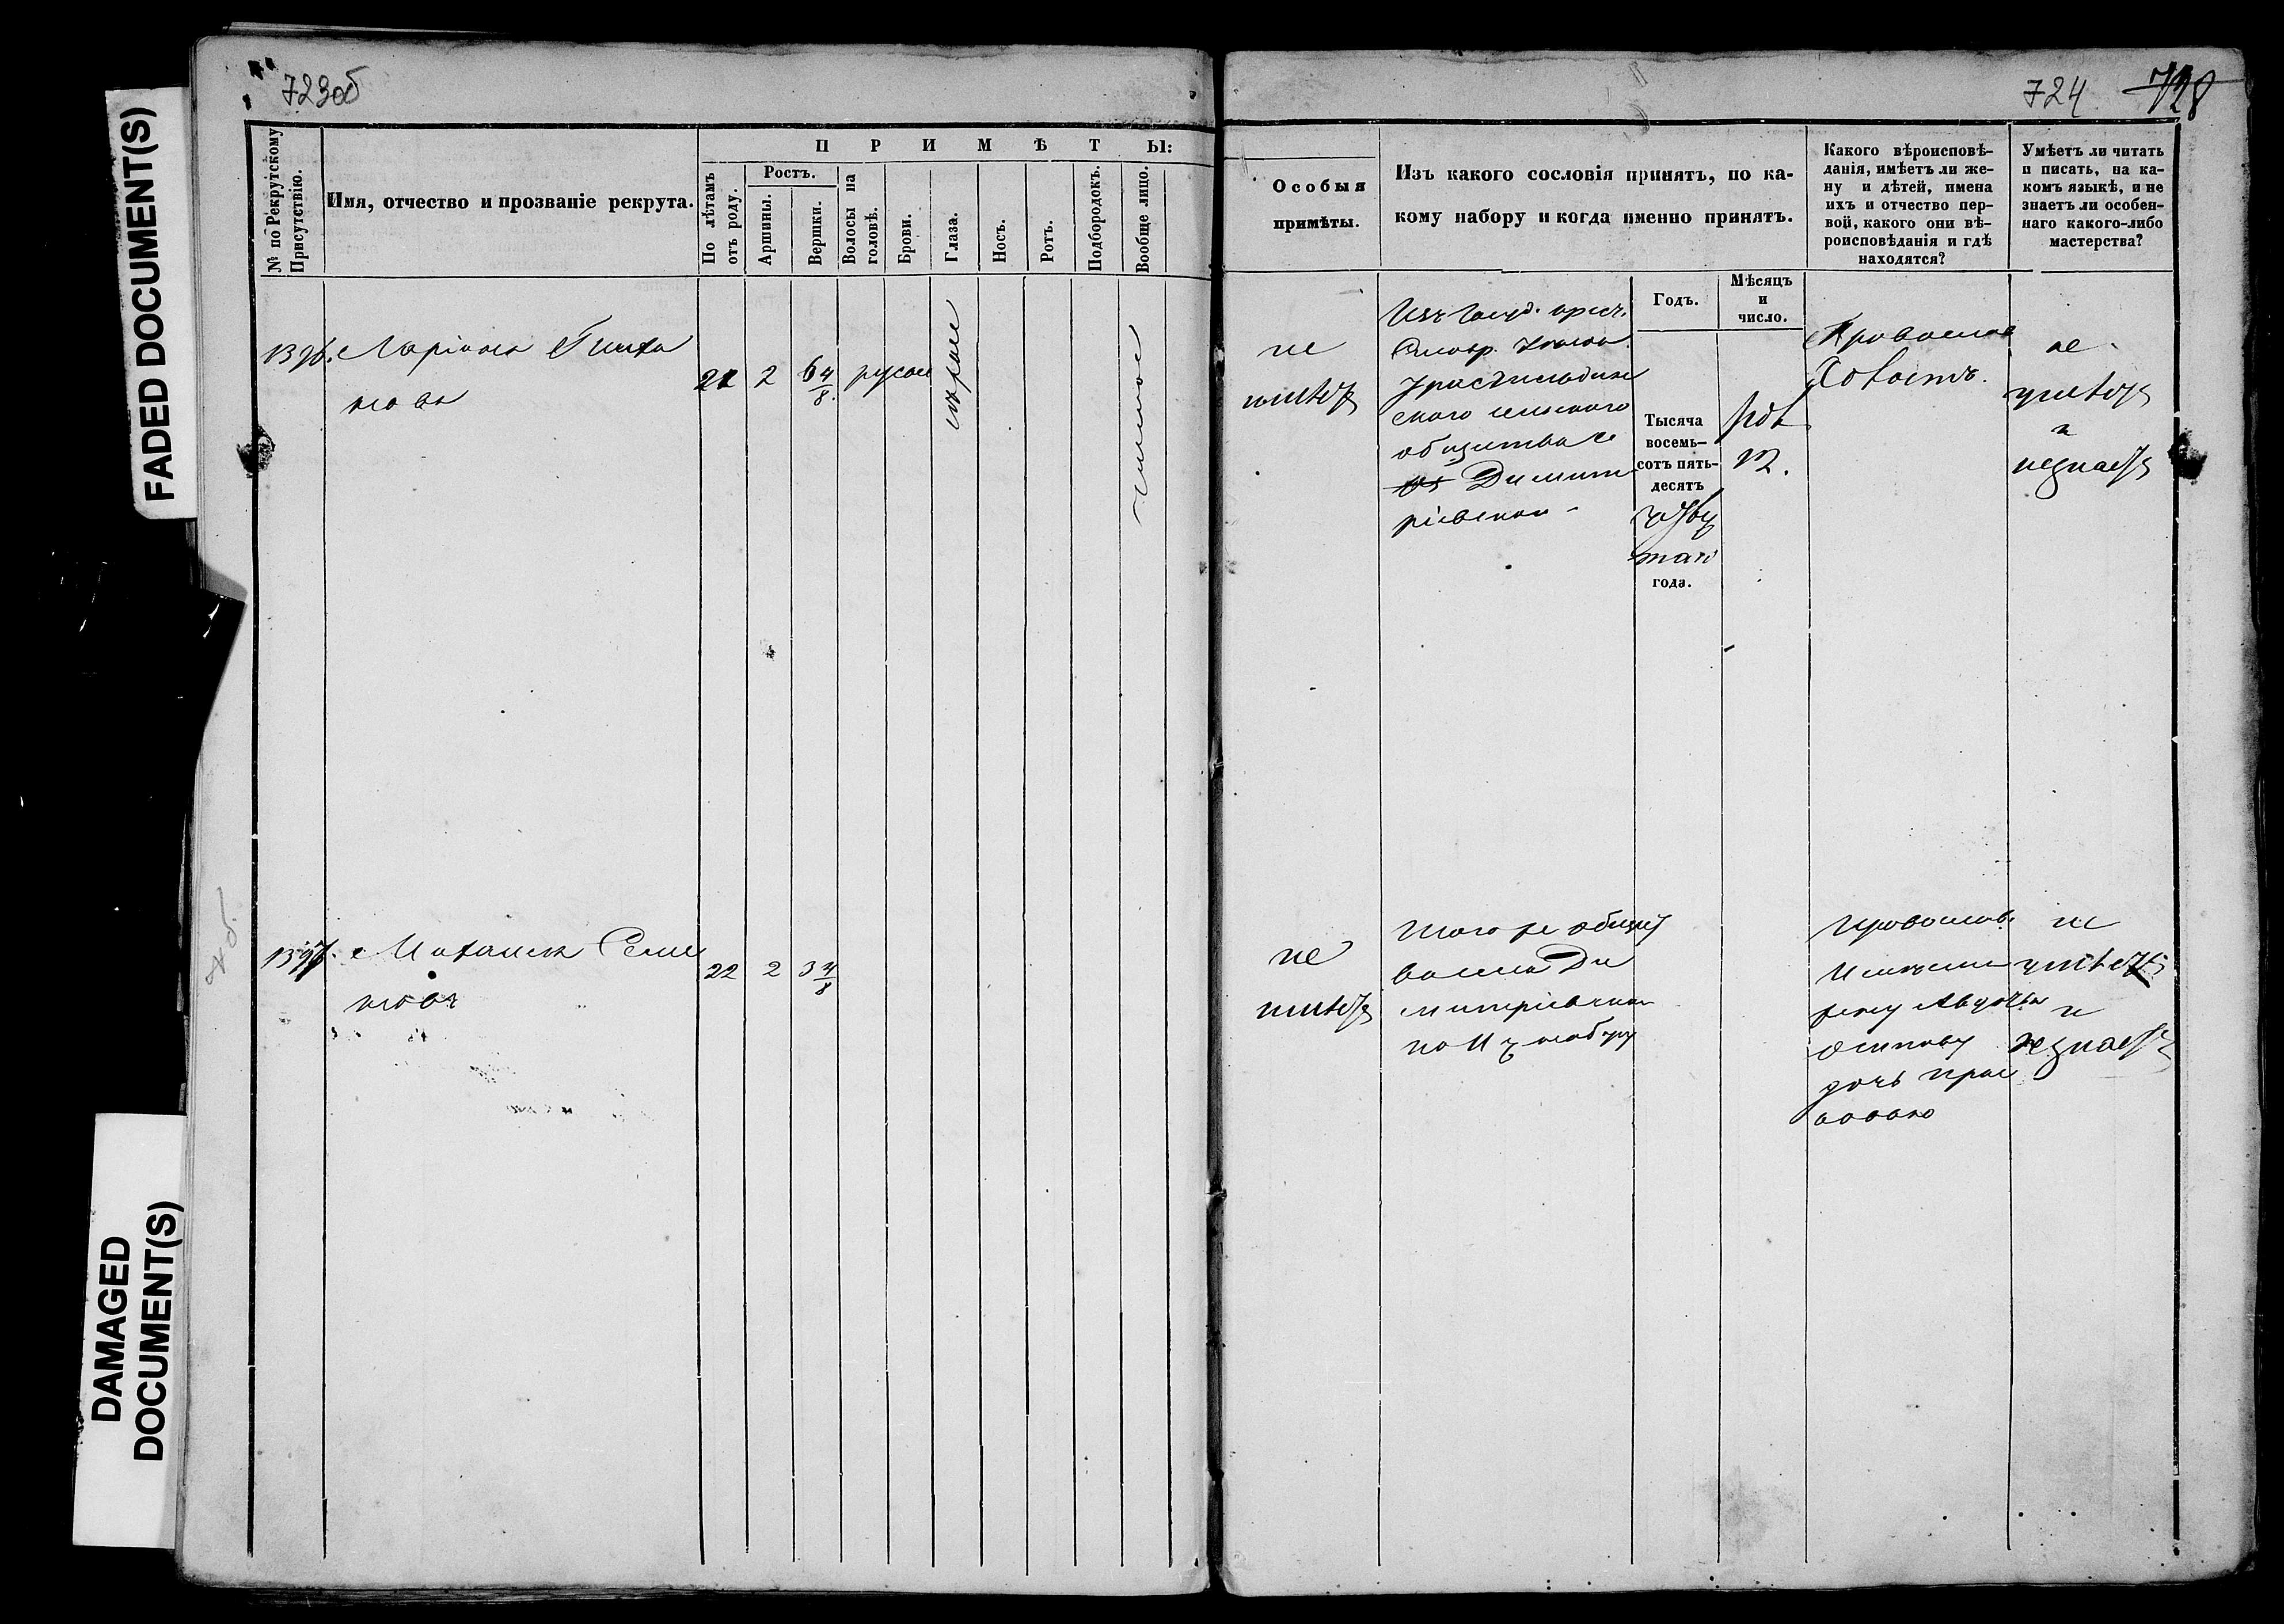 FADED DOCUMENT(S)
DAMAGED
DOCUMENT(S)
723об
№ по Рекрутскому
Присутствію.
Имя, отчество и прозваніе рекрута.
П Р И М Ѣ Т Ы:
По лѣтамъ
отъ роду.
Ростъ.
Аршины.
Вершки.
Волосы на
головѣ.
Брови.
Глаза.
Носъ.
Ротъ.
Подбородокъ.
Вообще лицо.
1396.
новъ
21 2 6 4/8. русые
чистое
1397.
новъ
22 2 3 4/8
724 728
Особыя
примѣты.
Изъ какого сословія принятъ, по ка-
кому набору и когда именно принятъ.
Какого вѣроисповѣ-
данія, имѣетъ ли же-
ну и дѣтей, имена
ихъ и отчество пер-
вой, какого они вѣ-
роисповѣданія и гдѣ
находятся?
Умѣетъ ли читать
и писать, на ка-
комъ языкѣ, и не
знаетъ ли особен-
наго какого-либо
мастерства?
Годъ.
Мѣсяцъ
и
число.
не
имѣетъ
Изъ Госуд. крест.
ского сельского
общества
Димит
ріевки
Тысяча
восемь-
сотъ пять-
десятъ
года.
12.
Православ
Холостъ.
не
умѣетъ
и
незнаетъ
не
имѣетъ
Того же общест
Ди
митріевки
набору
Православ.
жену Авдотью
Осипову
дочь Прас
ковью
не
умѣетъ
и
незнаетъ